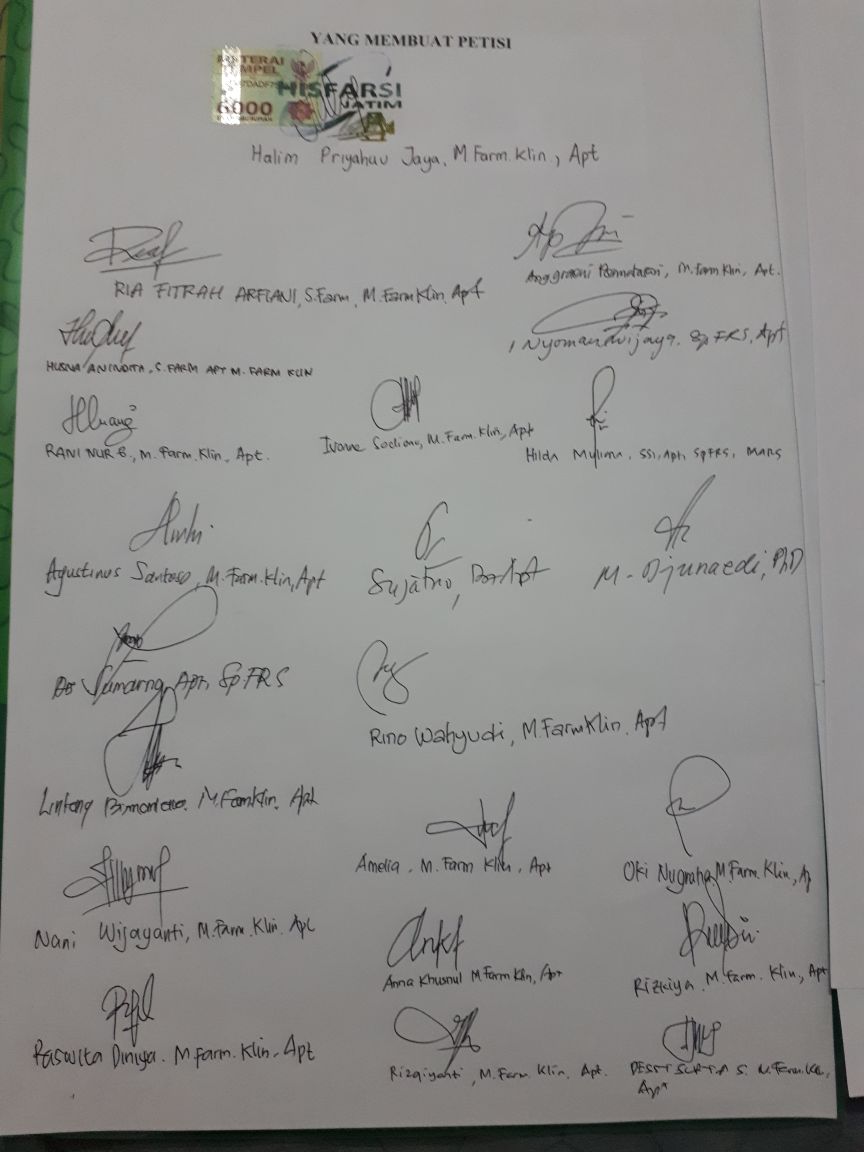 YANG MEMBUAT PETISI
METERAI
TEMPEL
6000
HISFARSI
JATIM
Halim Priyahau Jaya, M Farm.Klin, Apt
RIA FITRAH ARFIANI, S.Farm, M.Farm Klin, Apt
Anggraeni Permatasari, M.Farm Klin, Apt.
HUSNA ANINDITA, S.FARM APT M. FARM KLIN
I Nyoman Wijaya. Sp FRS, Apt
RANI NUR B., M. Farm. Klin, Apt.
Ivone Soediono, M. Farm. Klin, Apt
Hilda Mylima, SSi, Apt, SpFRS, MARS
Agustinus Santoso, M. Farm. Klin, Apt
Sujatno, Drs Apt
M. Djunaedi, PhD
Apt, Sp.FRS
Rino Wahyudi, M.Farm Klin, Apt
Lintang M.FarmKlin, Apt
Amelia, M. Farm Klin, Apt
Oki Nugraha, M.Farm. Klin, Ap
Nani Wijayanti, M. Farm. Klin. Apt
Anna Khusnul M Farm Klin, Apt
Rizkiya M. Farm. Klin, Apt
Raswita Diniya. M.Farm. Klin, Apt
Rizqiyanti, M. Farm. Klin, Apt.
S. M.Farm.Klin,
Apt